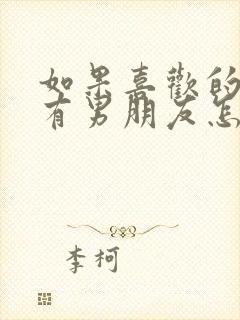 如果喜歡的
有男朋友怎
李柯